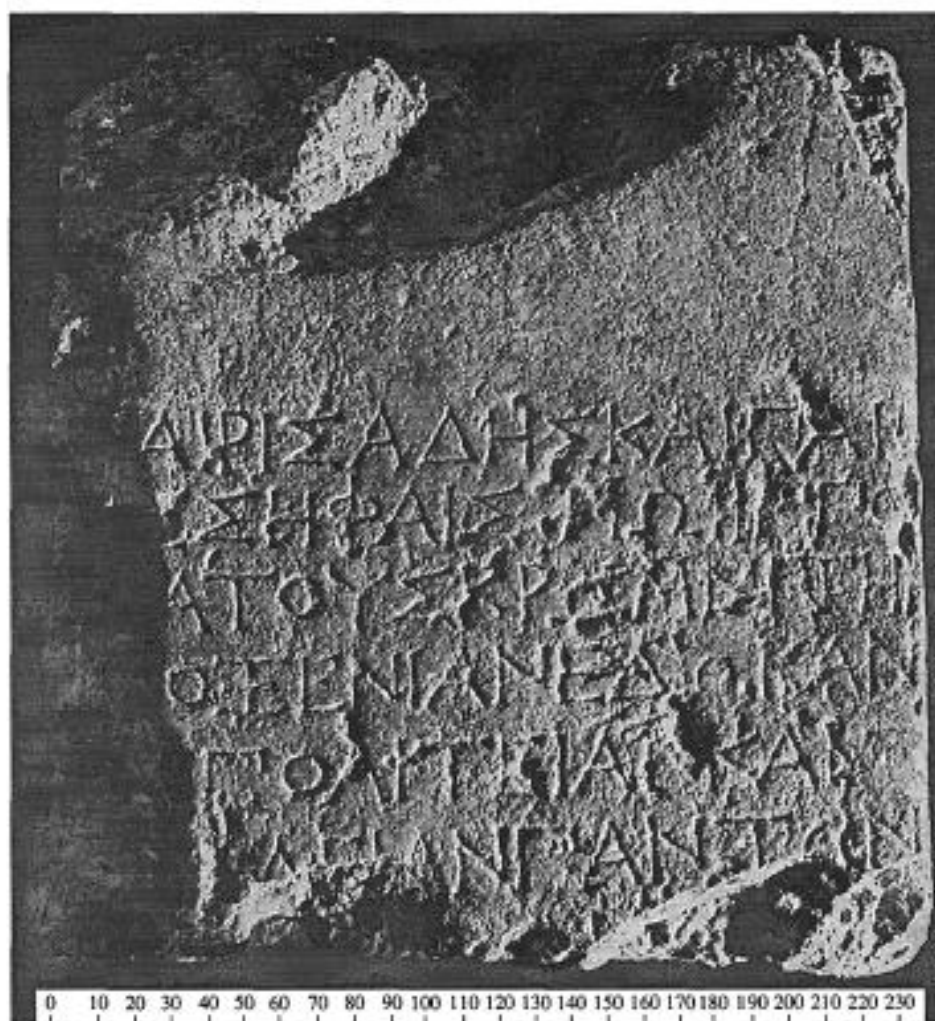 ΑΙΡΙΣΑΔΗΣΚΑΙΠΑΙ
ΣΗΦΑΙΣ ΩΙ ΠΟ
ΑΤΟΥΣ
ΟΞΕΝΙΑΝΕΔΩΚΑΝ
ΠΟΛΙΤΕΙΑ ΚΑΙ
ΛΕΙΑΝΠΑΝΤΩΝ
0 10 20 30 40 50 60 70 80 90 100 110 120 130 140 150 160 170 180 190 200 210 220 230